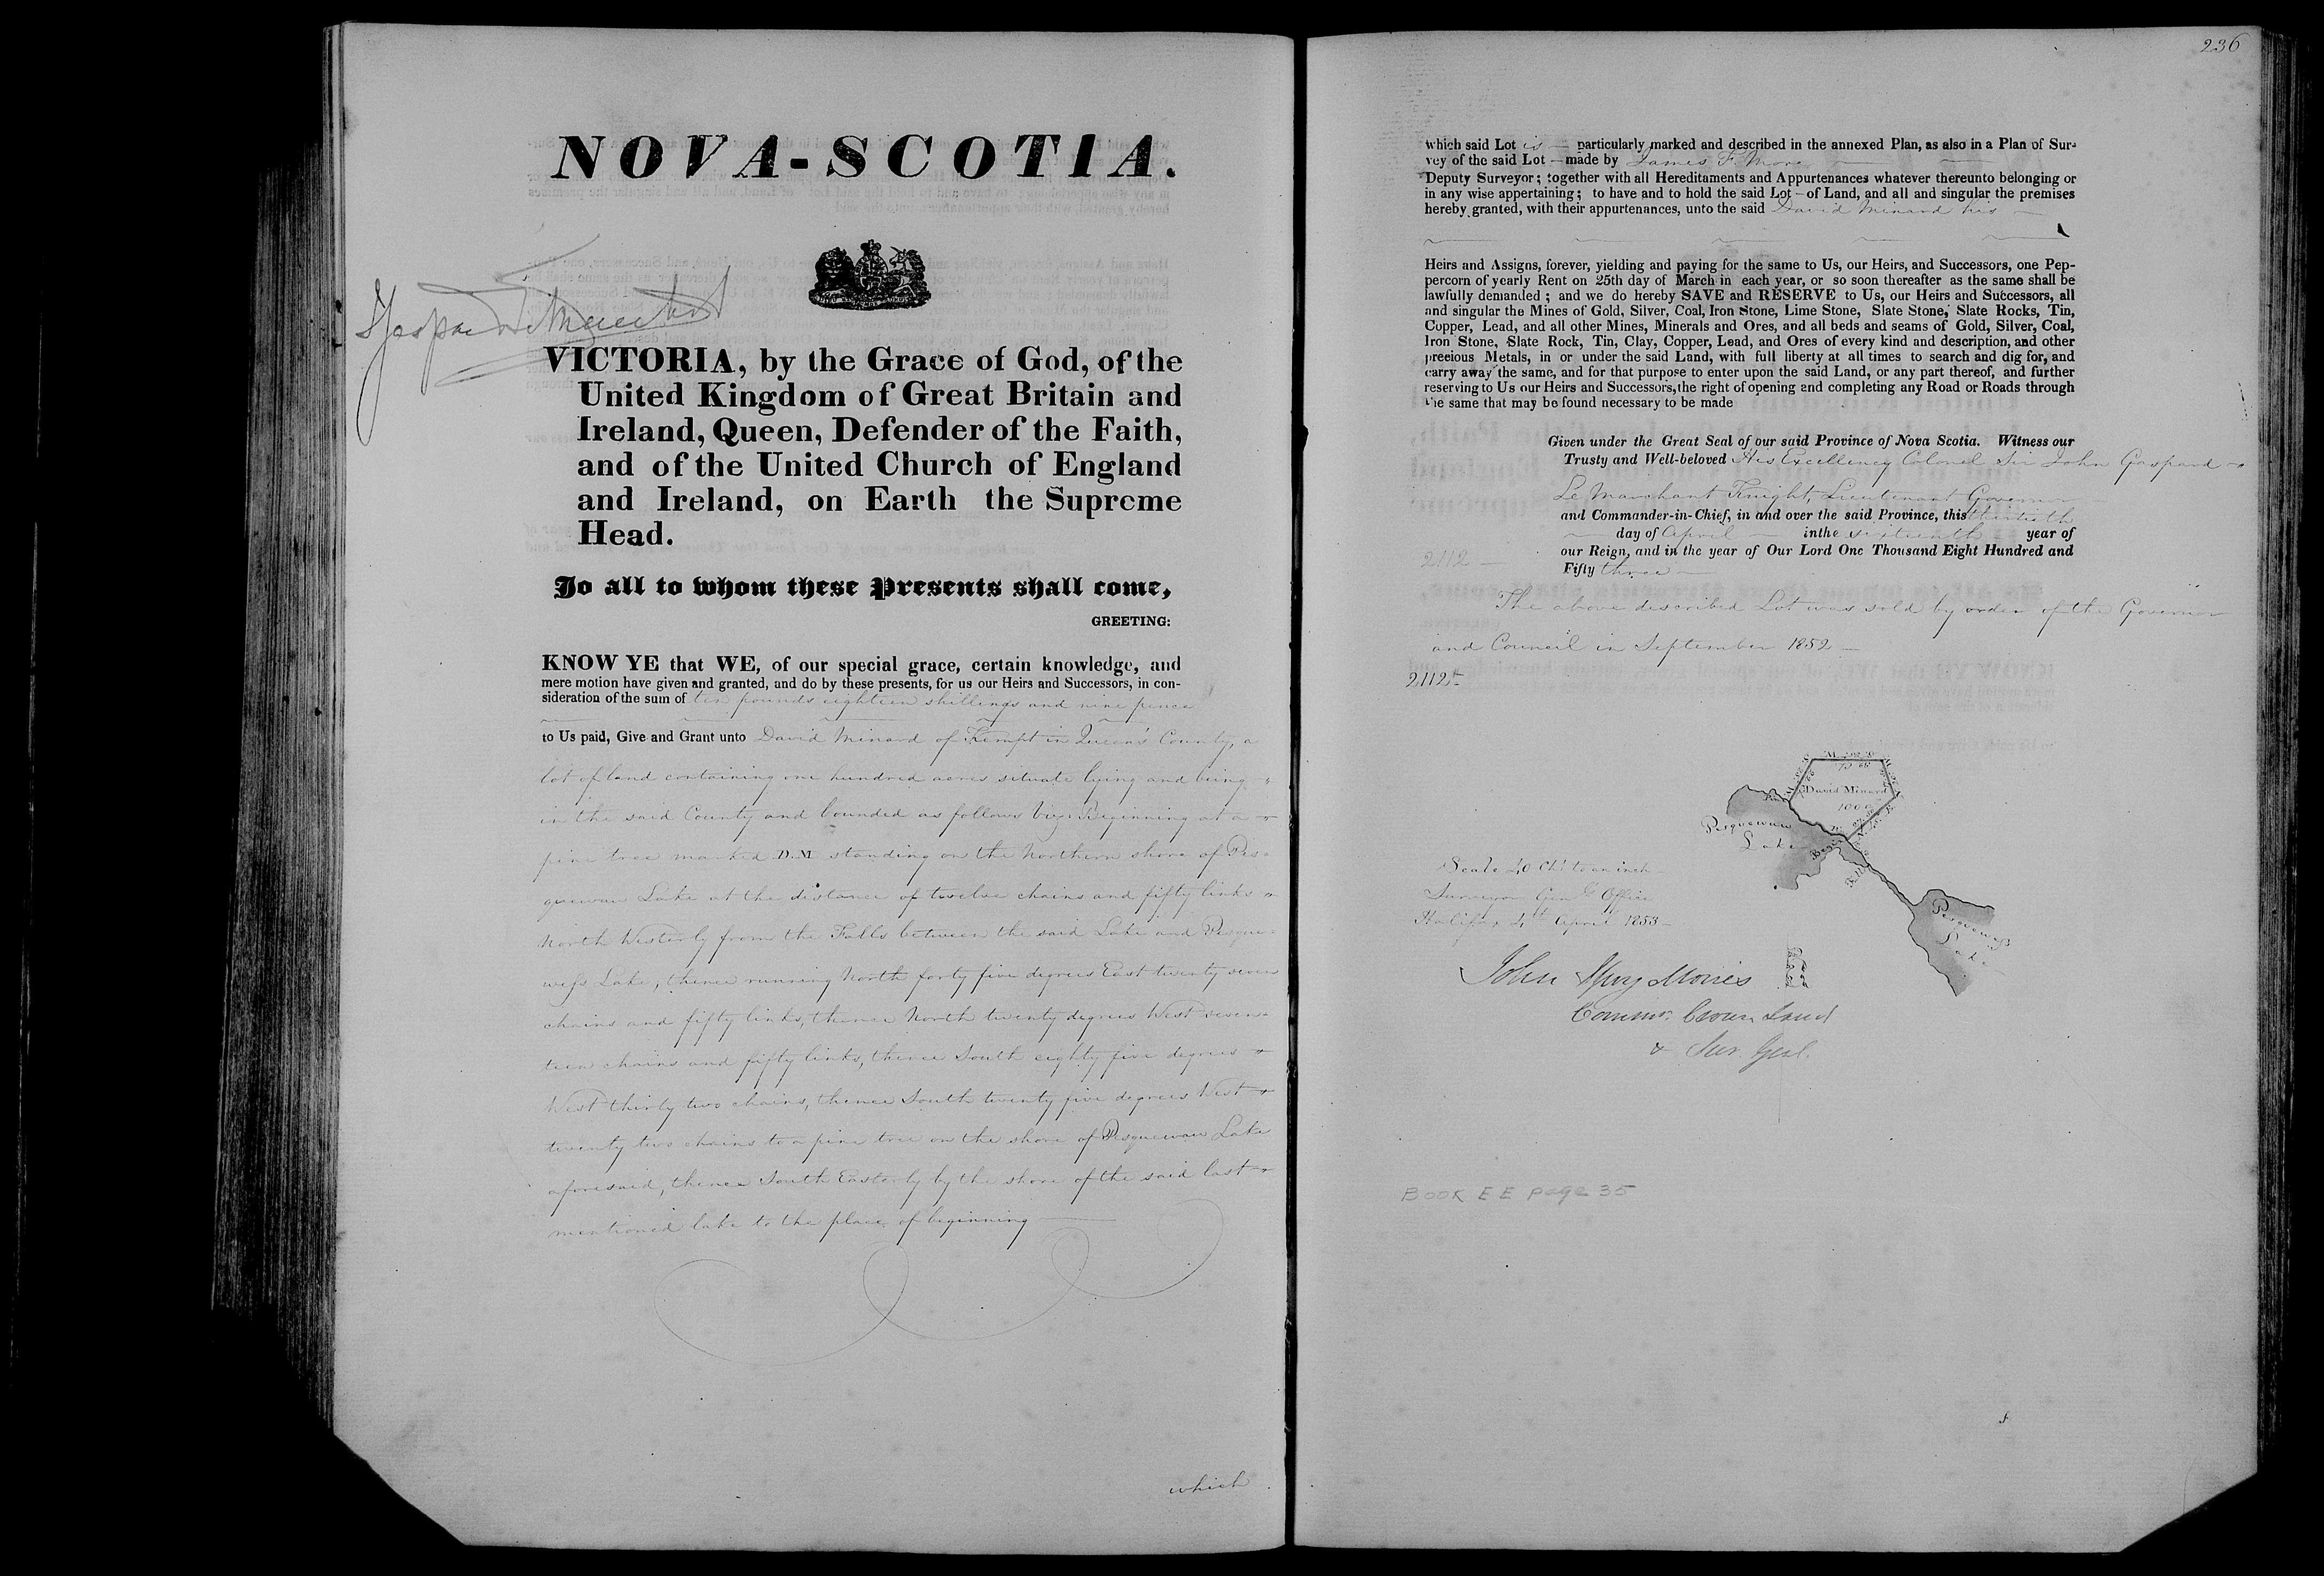 NOVA-SCOTIA.
Gaspard Le Marchant
VICTORIA, by the Grace of God, of the
United Kingdom of Great Britain and
Ireland, Queen, Defender of the Faith,
and of the United Church of England
and Ireland, on Earth the Supreme
Head.
To all to whom these Presents shall come,
GREETING:
KNOW YE that WE, of our special grace, certain knowledge, and
mere motion have given and granted, and do by these presents, for us our Heirs and Successors, in con-
sideration of the sum of ten pounds eighteen shillings and nine pence
to Us paid, Give and Grant unto David Minard of Kempt in Queen's County, a
lot of land containing one hundred acres situate lying and being
in the said County and bounded as follows viz: Beginning at a
pine tree marked D.M standing on the Northern shore of Pes-
quewaw Lake at the distance of twelve chains and fifty links
North Westerly from the Falls between the said Lake and Pesque-
wess Lake, thence running North forty five degrees East twenty seven
chains and fifty links, thence North twenty degrees West seven-
teen chains and fifty links, thence South eighty five degrees
West thirty two chains, thence South twenty five degrees West
twenty two chains to a pine tree on the shore of Pesquewaw Lake
aforesaid, thence South Easterly by the shore of the said last
mentioned lake to the place of beginning
which
236
which said Lot is particularly marked and described in the annexed Plan, as also in a Plan of Sur-
vey of the said Lot made by James F. More
Deputy Surveyor; together with all Hereditaments and Appurtenances whatever thereunto belonging or
in any wise appertaining; to have and to hold the said Lot of Land, and all and singular the premises
hereby granted, with their appurtenances, unto the said David Minard his
Heirs and Assigns, forever, yielding and paying for the same to Us, our Heirs, and Successors, one Pep-
percorn of yearly Rent on 25th day of March in each year, or so soon thereafter as the same shall be
lawfully demanded; and we do hereby SAVE and RESERVE to Us, our Heirs and Successors, all
and singular the Mines of Gold, Silver, Coal, Iron Stone, Lime Stone, Slate Stone, Slate Rocks, Tin,
Copper, Lead, and all other Mines, Minerals and Ores, and all beds and seams of Gold, Silver, Coal,
Iron Stone, Slate Rock, Tin, Clay, Copper, Lead, and Ores of every kind and description, and other
precious Metals, in or under the said Land, with full liberty at all times to search and dig for, and
carry away the same, and for that purpose to enter upon the said Land, or any part thereof, and further
reserving to Us our Heirs and Successors, the right of opening and completing any Road or Roads through
the same that may be found necessary to be made
Given under the Great Seal of our said Province of Nova Scotia. Witness our
Trusty and Well-beloved His Excellency Colonel Sir John Gaspard
Le Marchant Knight, Lieutenant Governor
and Commander-in-Chief, in and over the said Province, this thirtieth
day of April in the sixteenth year of
our Reign, and in the year of Our Lord One Thousand Eight Hundred and
2112
Fifty three
The above described Lot was sold by order of the Governor
and Council in September 1852
2112
David Minard
100 a
Pesquewaw
Lake
Begin
Falls
Pesquewess
Lake
Scale 40 Chs to an inch
Surveyor Genl Office
Halifax 4th April 1853
John Spry Morris
Commr. Crown Land
& Sur. Genl.
BOOK EE page 35